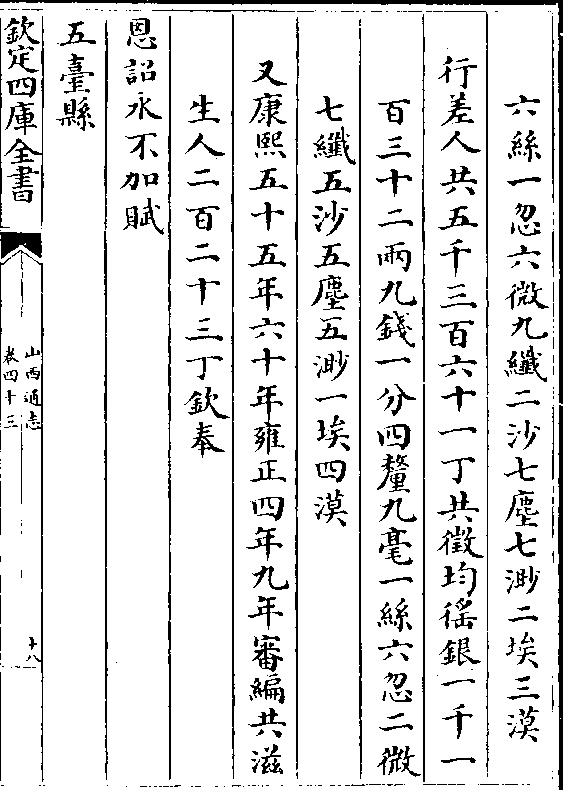 六絲一忽六微九纖二沙七塵七渺二埃三漠
行差人共五千三百六十一丁共徵均徭銀一千一
百三十二兩九錢一分四釐九毫一絲六忽二微
七纖五沙五塵五渺一埃四漠
又康熙五十五年六十年雍正四年九年審編共滋
生人二百二十三丁欽奉
恩詔永不加賦
五臺縣
欽定四庫全書
山西通志
卷四十三
十八